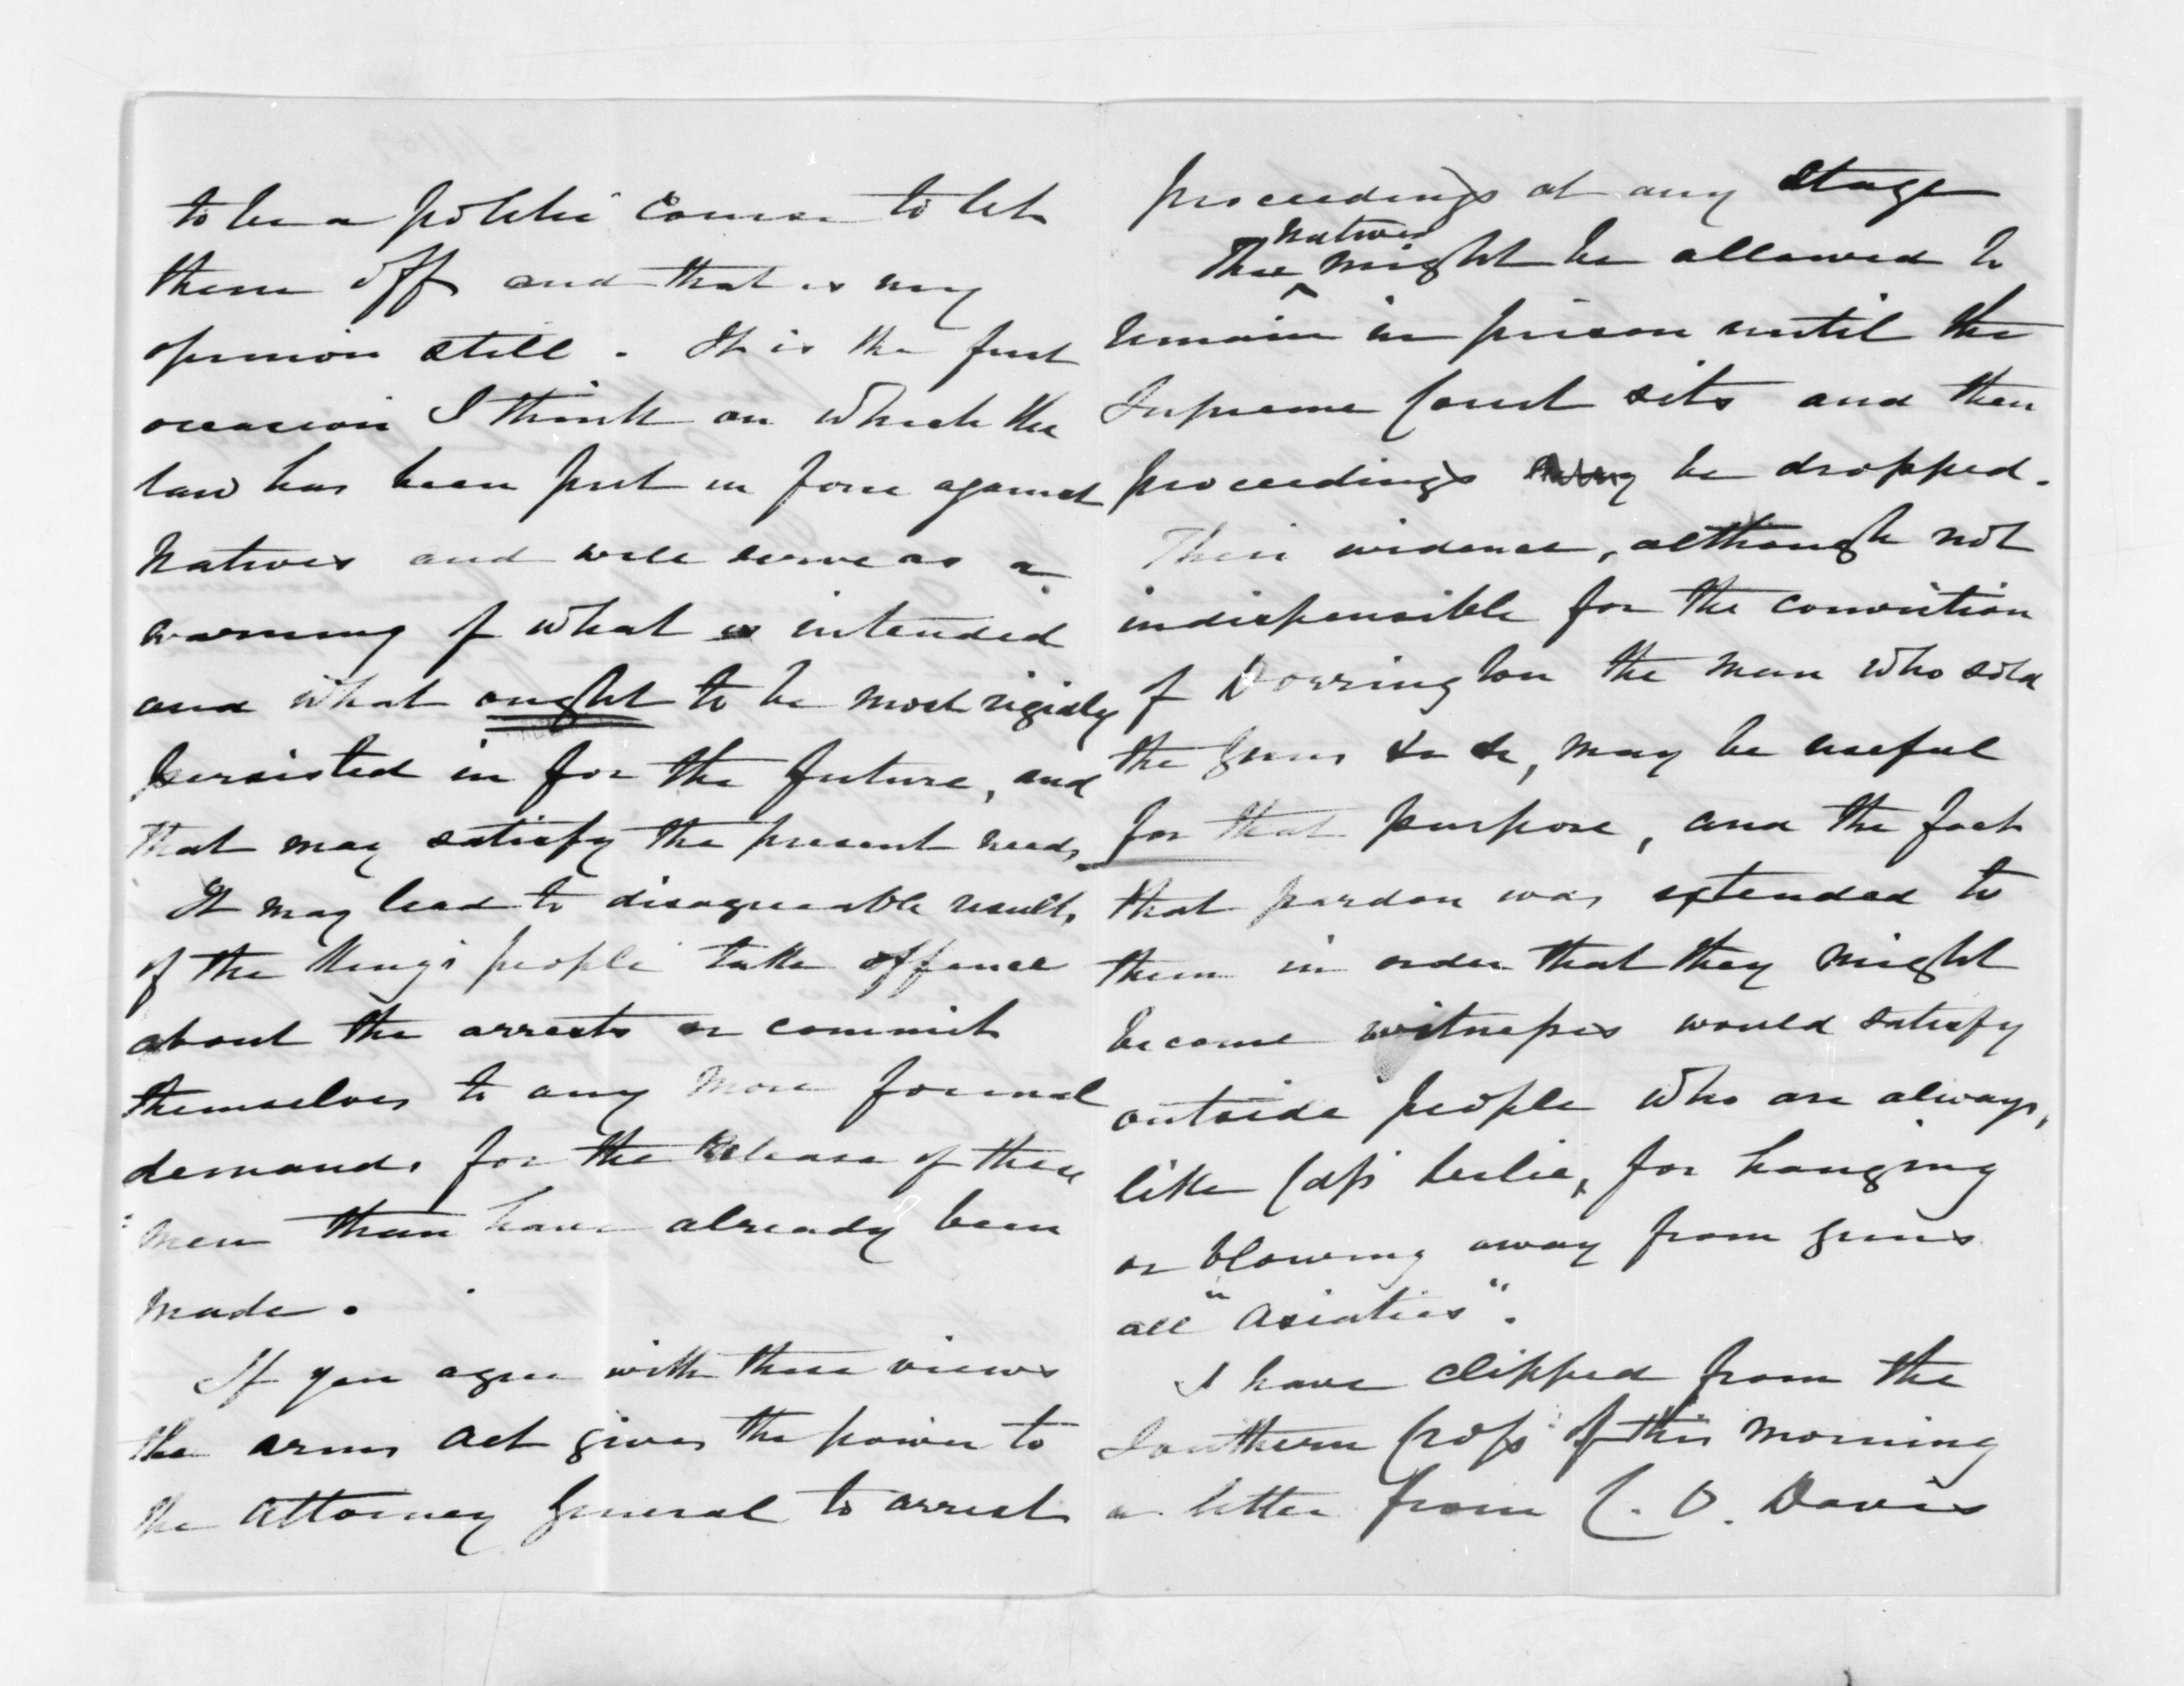 to be a politic course to let
them off and that is my
opinion still. It is the first
occasion I think on which the
law has been put in force against
Natives and will serve as a
warning of what is intended
and what ought to be most rigidly
persisted in for the future, and
that may satisfy the present needs
It may lead to disagreeable results
if the Kings people take offence
about the arrests or commit
themselves to any more formal
demands for the release of these
men than have already been
made.
If you agree with these views
the arms act gives the power to
the Attorney General to arrest
proceedings at any stage
natives
These might be allowed to
remain in prison until the
Supreme Court sits and then
proceedings be dropped.
Their evidence, although not
indispensible for the conviction
of Dorrington the man who sold
the guns &c &c, may be useful
for that purpose, and the fact
that pardon was extended to
them in order that they might
become witnesses would satisfy
outside people who are always,
like Capt Leslie, for hanging
or blowing away from guns
all "Asiatics".
I have clipped from the
Southern Cross of this morning
a letter from C. O. Davis